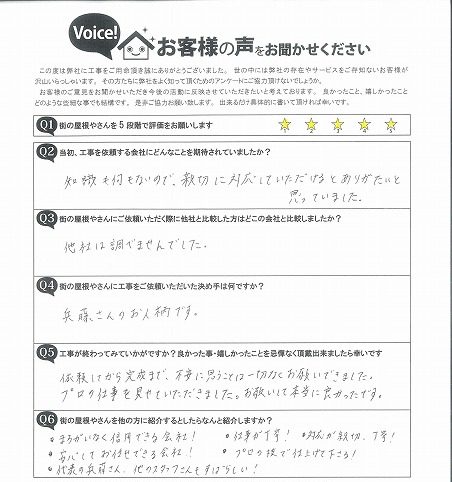 Voice!
お客様の声をお聞かせください
この度は弊社に工事をご用命頂き誠にありがとうございました。 世の中には弊社の存在やサービスをご存知ないお客様が
沢山いらっしゃいます。 その方たちに弊社をよく知って頂くためのアンケートにご協力頂けないでしょうか。
お客様のご意見をお聞かせいただき今後の活動に反映させていただきたいと考えております。 良かったこと、嬉しかったこと
どのような些細な事でも結構です。 是非ご協力お願い致します。 出来るだけ具体的に書いて頂ければ幸いです。
Q1 街の屋根やさんを5段階で評価をお願いします
1 2 3 4 5
Q2 当初、工事を依頼する会社にどんなことを期待されていましたか?
知識も何もないので、親切に対応していただけるとありがたいと
思っていました。
Q3 街の屋根やさんにご依頼いただく際に他社と比較した方はどこの会社と比較しましたか?
他社は調べませんでした。
Q4 街の屋根やさんに工事をご依頼いただいた決め手は何ですか?
兵藤さんのお人柄です。
Q5 工事が終わってみていかがですか?良かった事・嬉しかったことを忌憚なく頂戴出来ましたら幸いです
依頼してから完成まで、不安に思うことは一切なくお願いできました。
プロの仕事を見せていただきました。お願いして本当に良かったです。
Q6 街の屋根やさんを他の方に紹介するとしたらなんと紹介しますか?
・まちがいなく信用できる会社! ・仕事が丁寧! ・対応が親切、丁寧!
・安心してお任せできる会社! ・プロの技で仕上げて下さる!
・代表の兵藤さん、他のスタッフさんもすばらしい!